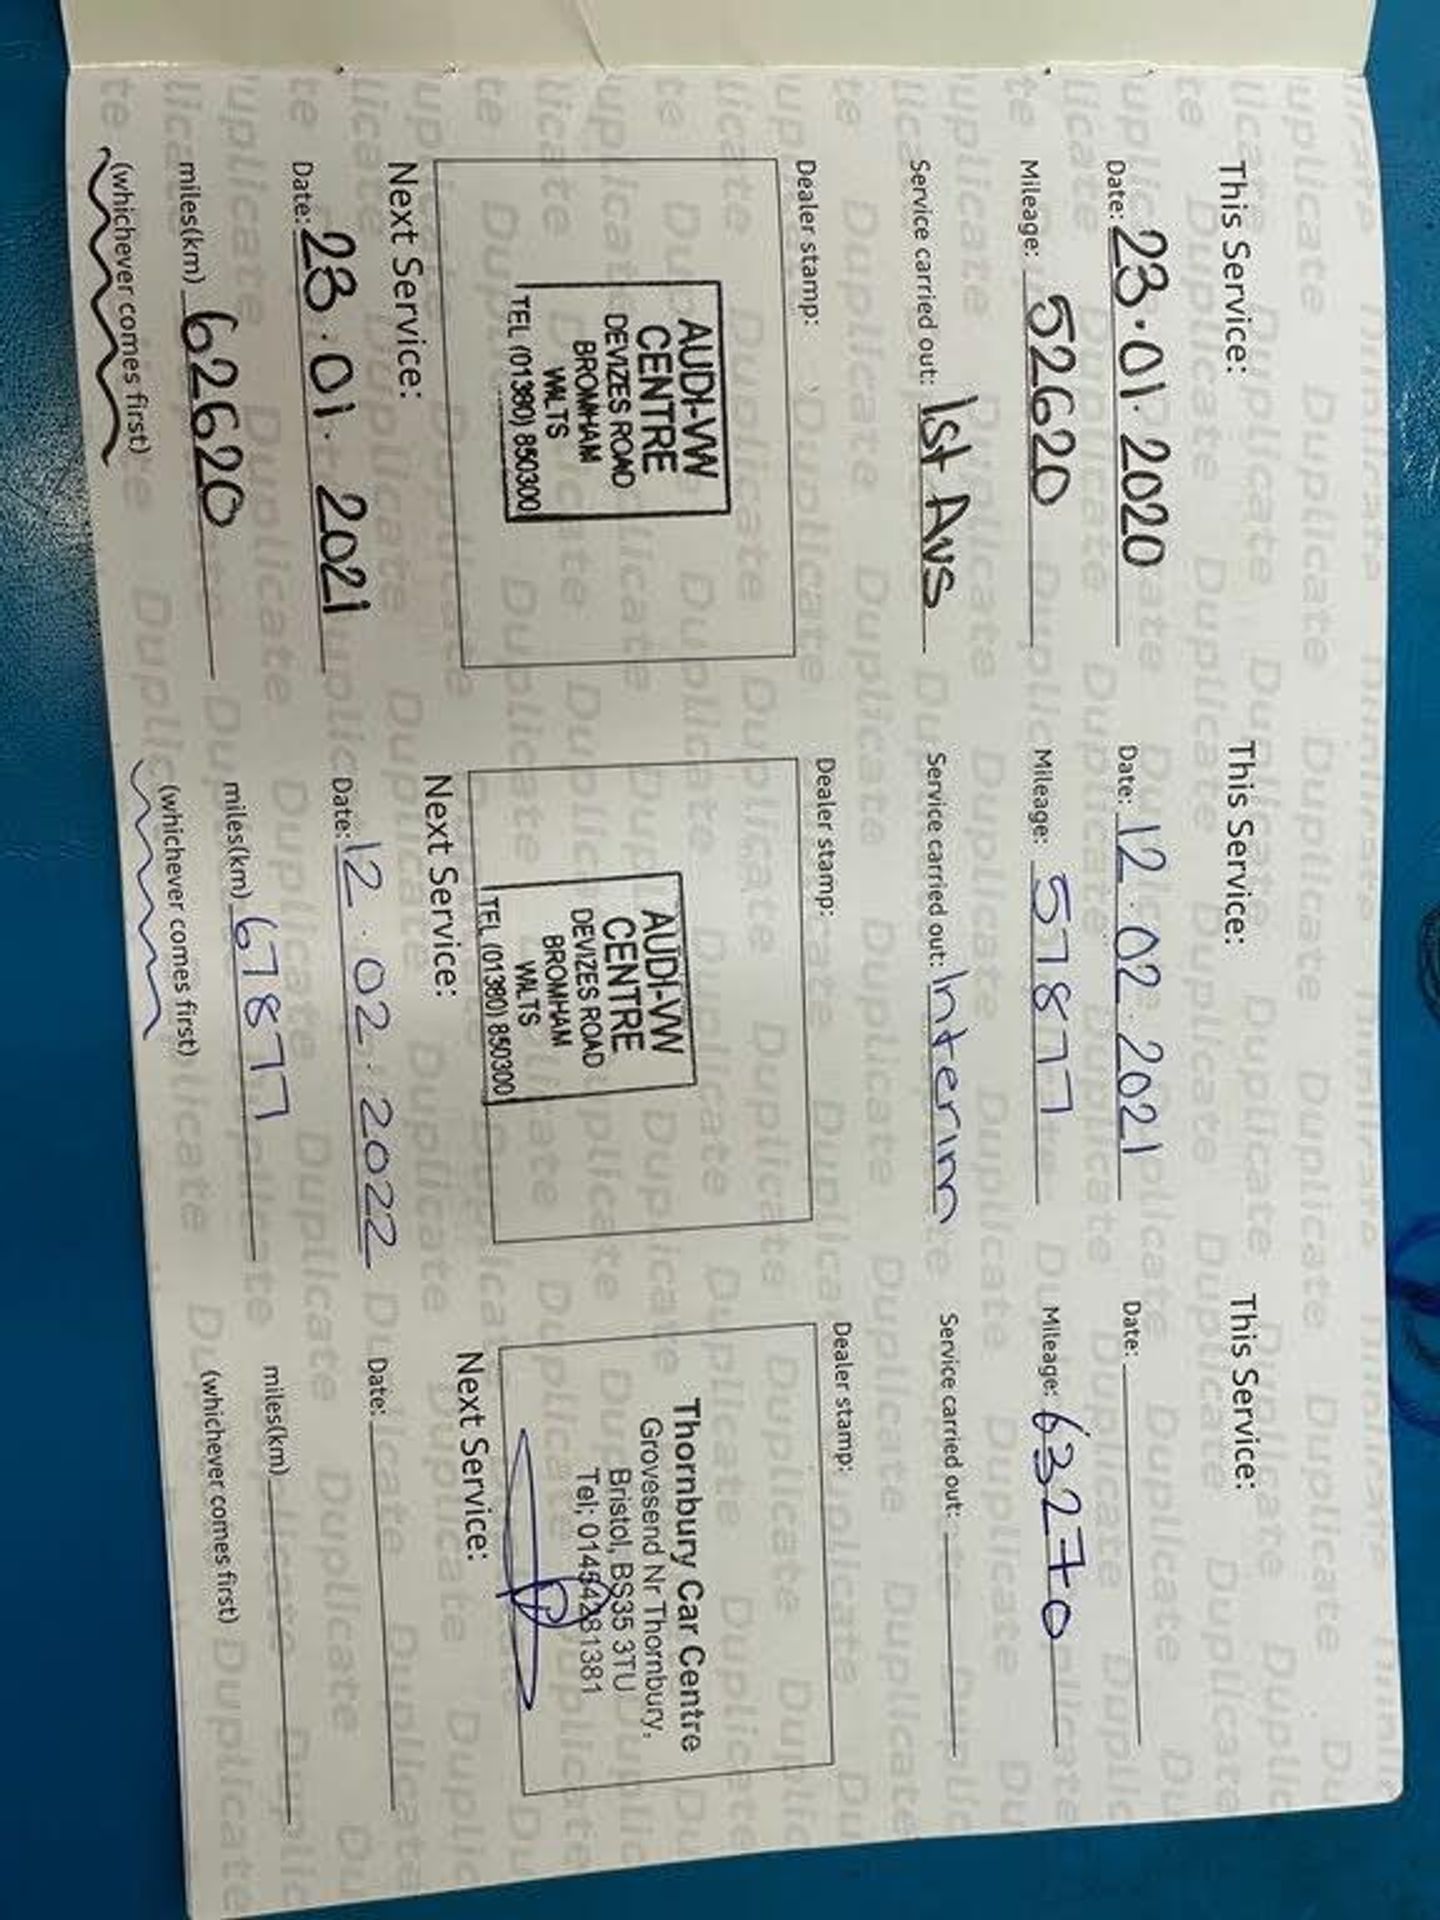 This Service:
Date: 23.01.2020
Mileage: 52620
Service carried out: 1st AVS
Dealer stamp:
AUDI-VW
CENTRE
DEVIZES ROAD
BROMHAM
WILTS
TEL (01380) 850300
Next Service:
Date: 23.01.2021
miles(km) 62620
(whichever comes first)
This Service:
Date: 12.02.2021
Mileage: 57877
Service carried out: Interim
Dealer stamp:
AUDI-VW
CENTRE
DEVIZES ROAD
BROMHAM
WILTS
TEL (01380) 850300
Next Service:
Date: 12.02.2022
miles(km) 67877
(whichever comes first)
This Service:
Date:
Mileage: 63270
Service carried out:
Dealer stamp:
Thornbury Car Centre
Grovesend Nr Thornbury,
Bristol, BS35 3TU
Tel; 01454281381
Next Service:
Date:
miles(km)
(whichever comes first)